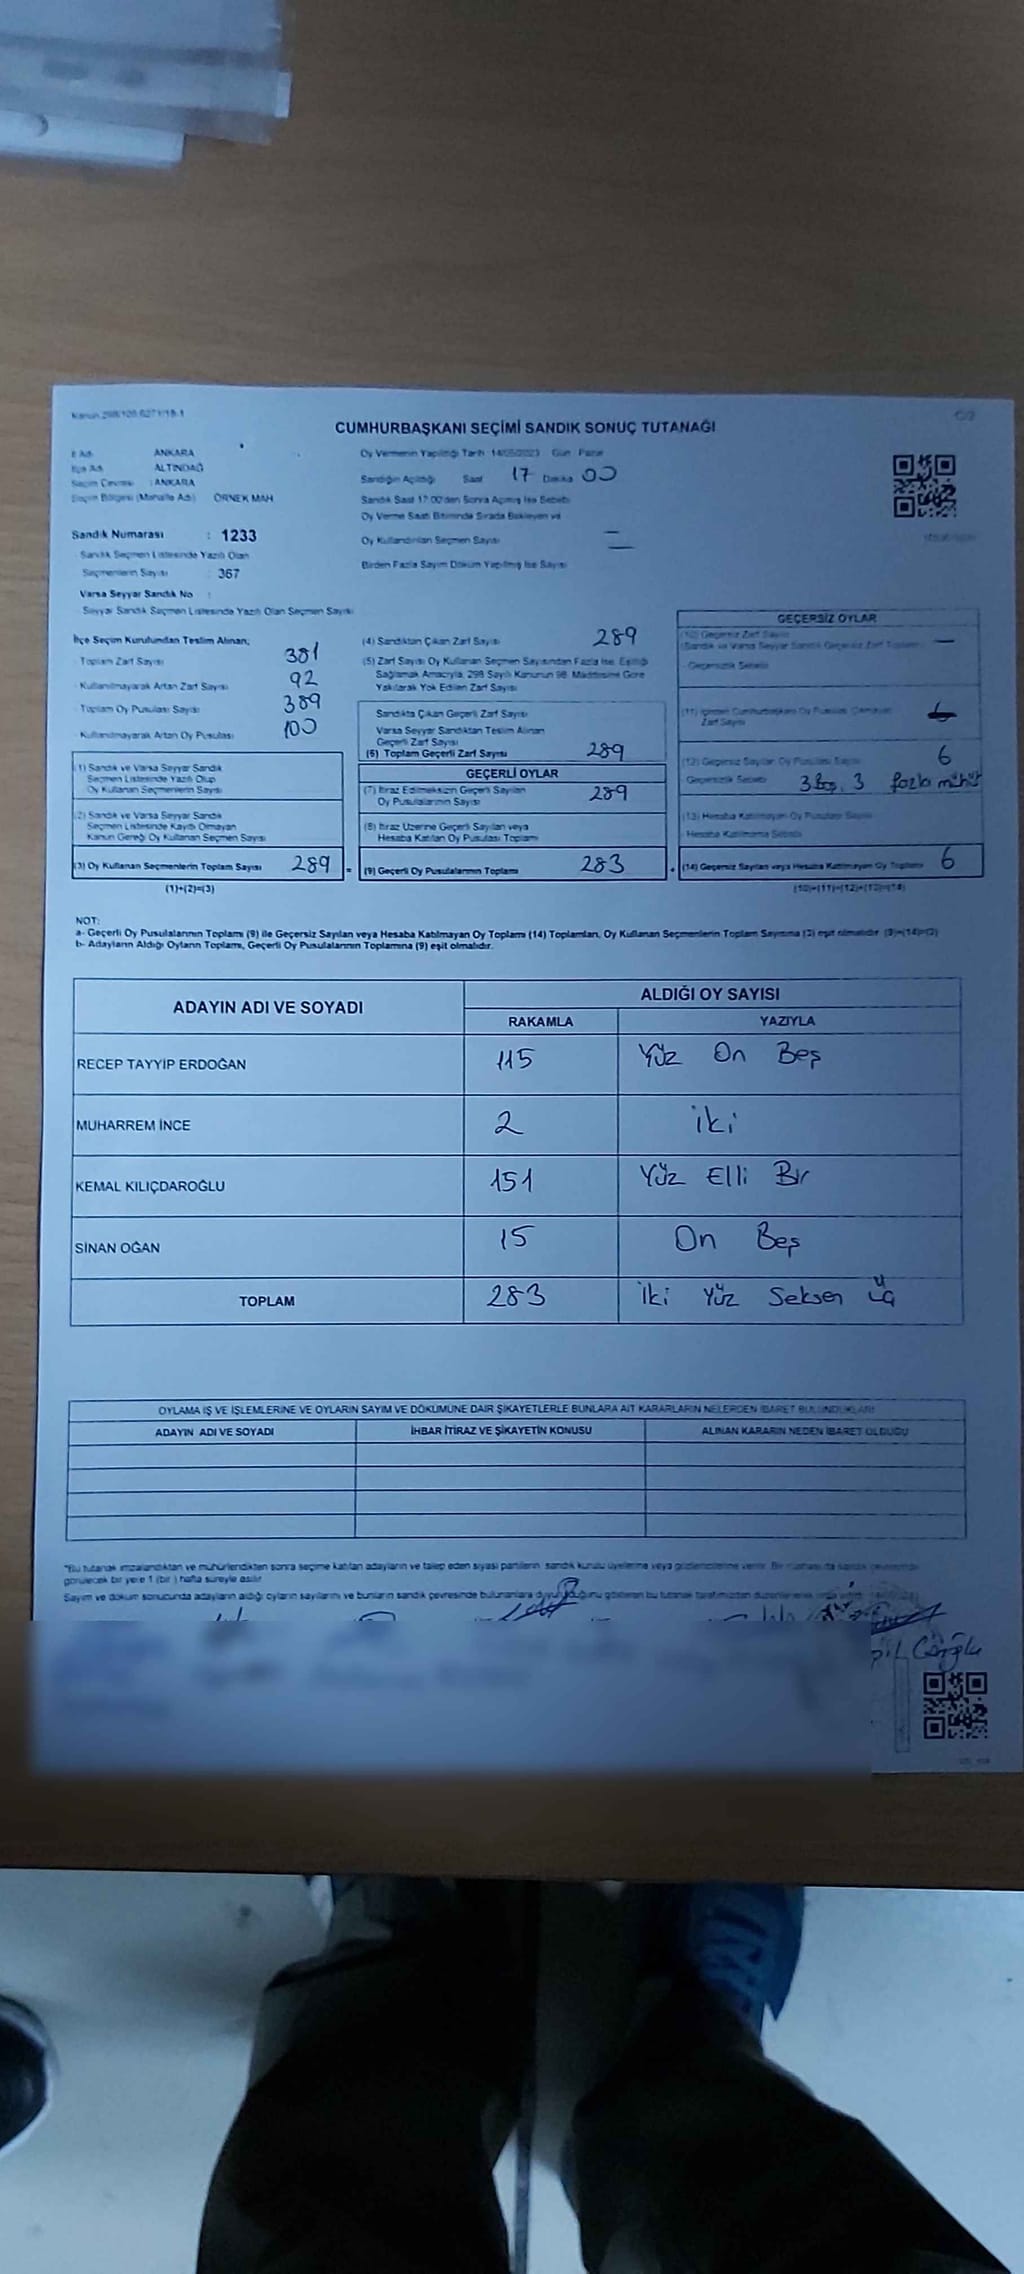 Kanun 298/105-6271/18-1
C/2
CUMHURBAŞKANI SEÇİMİ SANDIK SONUÇ TUTANAĞI
İl Adı ANKARA
İlçe Adı ALTINDAĞ
Seçim Çevresi : ANKARA
Seçim Bölgesi (Mahalle Adı) ÖRNEK MAH
Sandık Numarası : 1233
Sandık Seçmen Listesinde Yazılı Olan
Seçmenlerin Sayısı : 367
Varsa Seyyar Sandık No :
Seyyar Sandık Seçmen Listesinde Yazılı Olan Seçmen Sayısı
Oy Vermenin Yapıldığı Tarih 14/05/2023 Gün Pazar
Sandığın Açıldığı Saat 17 Dakika 00
Sandık Saat 17:00'den Sonra Açılmış İse Sebebi
Oy Verme Saati Bitiminde Sırada Bekleyen ve
Oy Kullandırılan Seçmen Sayısı
Birden Fazla Sayım Döküm Yapılmış İse Sayısı
İlçe Seçim Kurulundan Teslim Alınan;
- Toplam Zarf Sayısı 381
- Kullanılmayarak Artan Zarf Sayısı 92
- Toplam Oy Pusulası Sayısı 389
- Kullanılmayarak Artan Oy Pusulası 100
(1) Sandık ve Varsa Seyyar Sandık
Seçmen Listesinde Yazılı Olup
Oy Kullanan Seçmenlerin Sayısı
(2) Sandık ve Varsa Seyyar Sandık
Seçmen Listesinde Kayıtlı Olmayan
Kanun Gereği Oy Kullanan Seçmen Sayısı
(3) Oy Kullanan Seçmenlerin Toplam Sayısı 289
(1)+(2)=(3)
(4) Sandıktan Çıkan Zarf Sayısı 289
(5) Zarf Sayısı Oy Kullanan Seçmen Sayısından Fazla İse, Eşitliği
Sağlamak Amacıyla, 298 Sayılı Kanunun 98. Maddesine Göre
Yakılarak Yok Edilen Zarf Sayısı
Sandıkta Çıkan Geçerli Zarf Sayısı
Varsa Seyyar Sandıktan Teslim Alınan
Geçerli Zarf Sayısı
(6) Toplam Geçerli Zarf Sayısı 289
GEÇERLİ OYLAR
(7) İtiraz Edilmeksizin Geçerli Sayılan
Oy Pusulalarının Sayısı 289
(8) İtiraz Üzerine Geçerli Sayılan veya
Hesaba Katılan Oy Pusulası Toplamı
= (9) Geçerli Oy Pusulalarının Toplamı 283
GEÇERSİZ OYLAR
(10) Geçersiz Zarf Sayısı
(Sandık ve Varsa Seyyar Sandık Geçersiz Zarf Toplamı) —
Geçersizlik Sebebi
(11) İçinden Cumhurbaşkanı Oy Pusulası Çıkmayan
Zarf Sayısı
(12) Geçersiz Sayılan Oy Pusulası Sayısı 6
Geçersizlik Sebebi 3 Boş, 3 fazla mühür
(13) Hesaba Katılmayan Oy Pusulası Sayısı
Hesaba Katılmama Sebebi
+ (14) Geçersiz Sayılan veya Hesaba Katılmayan Oy Toplamı 6
(10)+(11)+(12)+(13)=(14)
NOT:
a- Geçerli Oy Pusulalarının Toplamı (9) ile Geçersiz Sayılan veya Hesaba Katılmayan Oy Toplamı (14) Toplamları, Oy Kullanan Seçmenlerin Toplam Sayısına (3) eşit olmalıdır. (9)+(14)=(3)
b- Adayların Aldığı Oyların Toplamı, Geçerli Oy Pusulalarının Toplamına (9) eşit olmalıdır.
ADAYIN ADI VE SOYADI ALDIĞI OY SAYISI
RAKAMLA YAZIYLA
RECEP TAYYİP ERDOĞAN 115 Yüz On Beş
MUHARREM İNCE 2 iki
KEMAL KILIÇDAROĞLU 151 Yüz Elli Bir
SİNAN OĞAN 15 On Beş
TOPLAM 283 iki Yüz Seksen üç
OYLAMA İŞ VE İŞLEMLERİNE VE OYLARIN SAYIM VE DÖKÜMÜNE DAİR ŞİKAYETLERLE BUNLARA AİT KARARLARIN NELERDEN İBARET BULUNDUKLARI
ADAYIN ADI VE SOYADI İHBAR İTİRAZ VE ŞİKAYETİN KONUSU ALINAN KARARIN NEDEN İBARET OLDUĞU
"Bu tutanak imzalandıktan ve mühürlendikten sonra seçime katılan adayların ve talep eden siyasi partilerin, sandık kurulu üyelerine veya gözlemcilerine verilir. Bir nüshası da sandık çevresinde
görülecek bir yere 1 (bir) hafta süreyle asılır.
Sayım ve döküm sonucunda adayların aldığı oyların sayılarını ve bunların sandık çevresinde bulunanlara duyurulduğunu gösteren bu tutanak tarafımızdan düzenlenerek